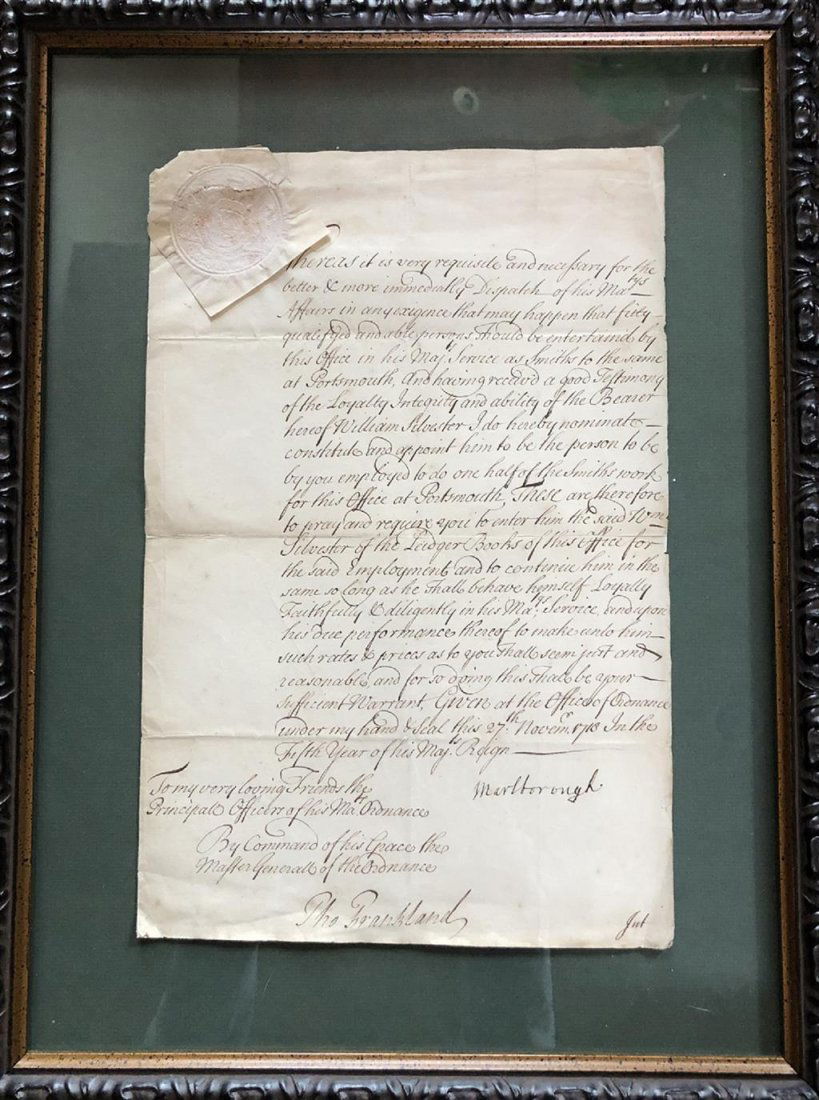 Whereas it is very requisite and necessary for the
better & more immediate Dispatch of his Ma^tys
Affairs in any exigence that may happen that fitly
qualifyed and able persons should be entertained by
this Office in his Maj^s Service as Smiths to the same
at Portsmouth, And having received a good Testimony
of the Loyalty Integrity and ability of the Bearer
hereof William Silvester I do hereby nominate
constitute and appoint him to be the person to be
by you employed to do one half of the Smiths work
for this Office at Portsmouth, These are therefore
to pray and require you to enter him the said Wm
Silvester of the Leidger Books of this Office for
the said Employment and to continue him in the
same so long as he shall behave himself Loyally
Faithfully & diligently in his Ma^ts Service, and upon
his due performance thereof to make unto him
such rates & prices as to you shall seem just and
reasonable, and for so doing this shall be your
sufficient Warrant, Given at the Office of Ordnance
under my hand & Seal this 27^th Novem^r 1718 In the
Fifth Year of his Maj^s Reign
Marlborough
To my very loving Friends the
Principall Officers of his Ma^ts Ordnance
By Command of his Grace the
Master Generall of the Ordnance
Tho Frankland